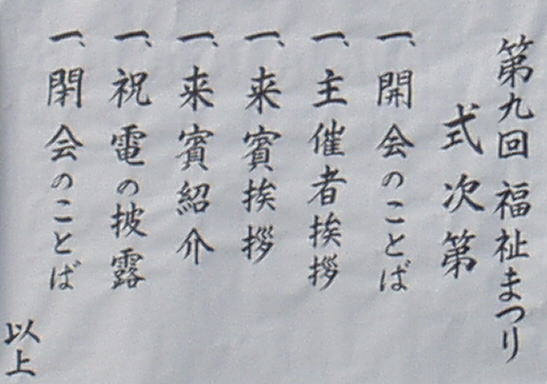 第九回福祉まつり
式次第
一、開会のことば
一、主催者挨拶
一、来賓挨拶
一、来賓紹介
一、祝電の披露
一、閉会のことば
以上